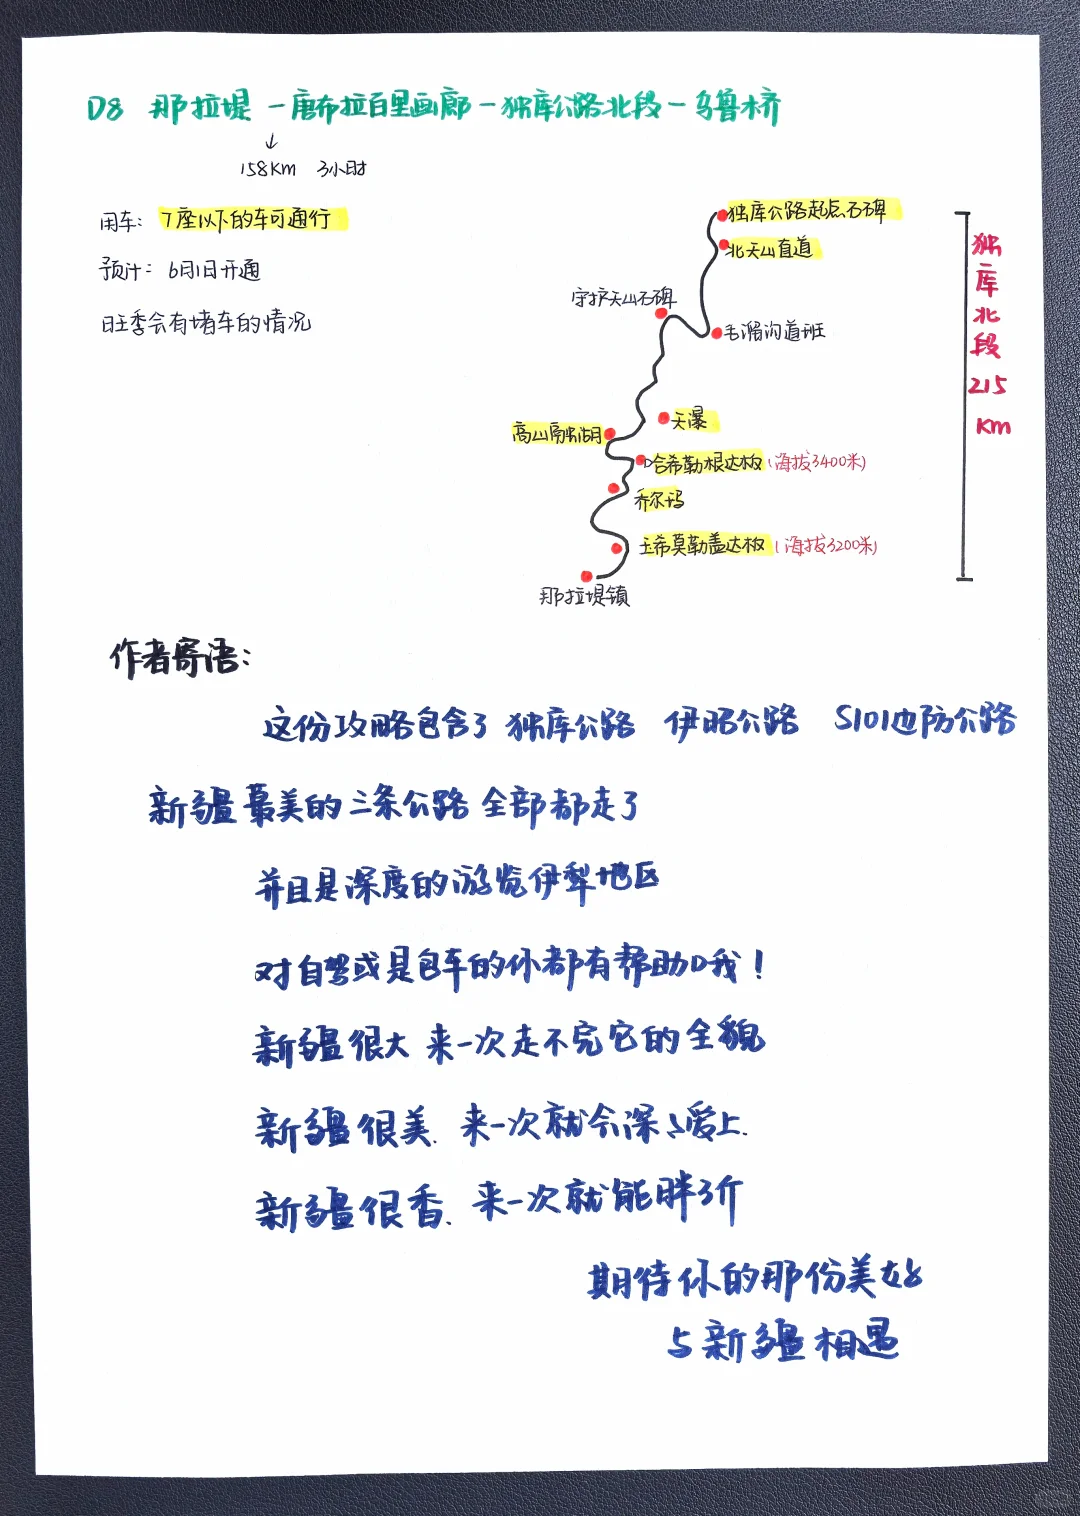 D8 那拉堤 — 唐布拉百里画廊 — 独库公路北段 — 乌鲁木齐
↓
158Km 3小时
用车: 7座以下的车可通行
预计: 6月1日开通
旺季会有堵车的情况
独库公路起点石碑
北天山直道
守护天山石碑
毛溜沟道班
天瀑
高山融湖
哈希勒根达板(海拔3400米)
乔尔玛
玉希莫勒盖达板(海拔3200米)
那拉堤镇
独库北段
215
Km
作者寄语:
这份攻略包含了 独库公路 伊昭公路 S101边防公路
新疆最美的三条公路 全部都走了
并且是深度的游览伊犁地区
对自驾或是包车的你都有帮助哦!
新疆很大 来一次走不完它的全貌
新疆很美. 来一次就会深深爱上.
新疆很香. 来一次就能胖3斤
期待你的那份美好
与新疆相遇